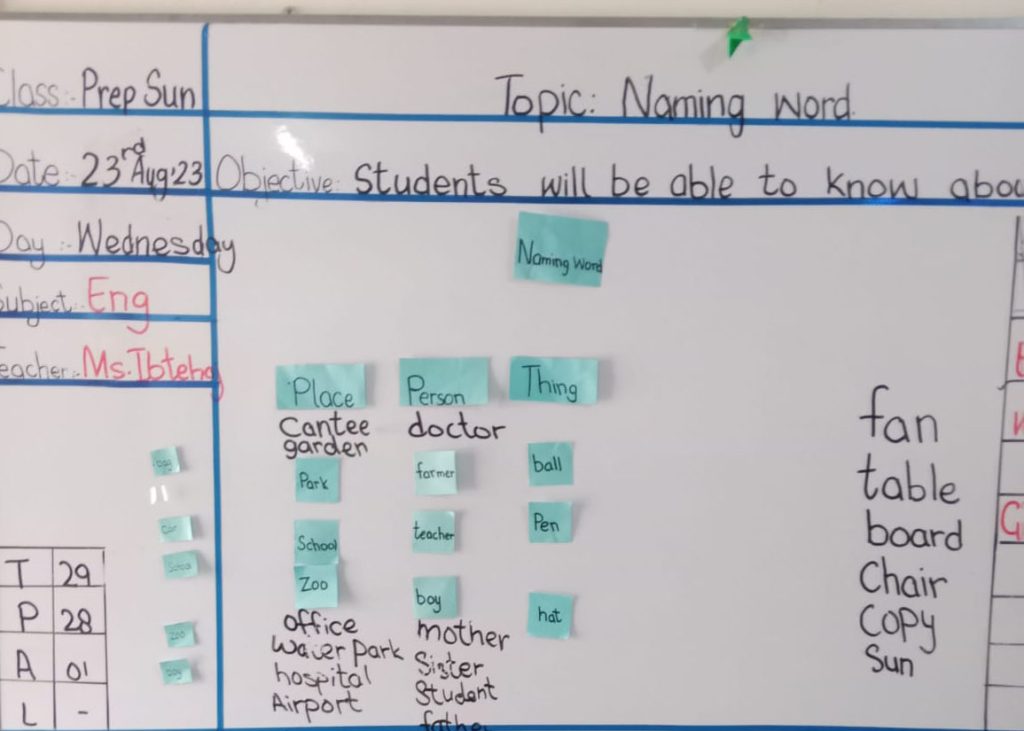 Class:- Prep Sun
Topic: Naming word.
Date:- 23rd Aug:23
Objective: Students will be able to know abou
Day:- Wednesday
Subject:- Eng
Teacher:- Ms. Ibteha
Naming word
Place
Cantee
garden
Park
School
Zoo
office
Water Park
hospital
Airport
Person
doctor
farmer
teacher
boy
mother
Sister
Student
father
Thing
ball
Pen
hat
fan
table
board
Chair
Copy
Sun
Car
School
Zoo
T 29
P 28
A 01
L -